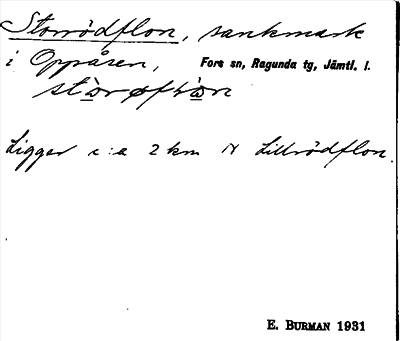 Storrödflon, sankmark
i Oppåsen, Fors sn, Ragunda tg, Jämtl. l.
Ligger c:a 2 km N Lillrödflon.
E. BURMAN 1931